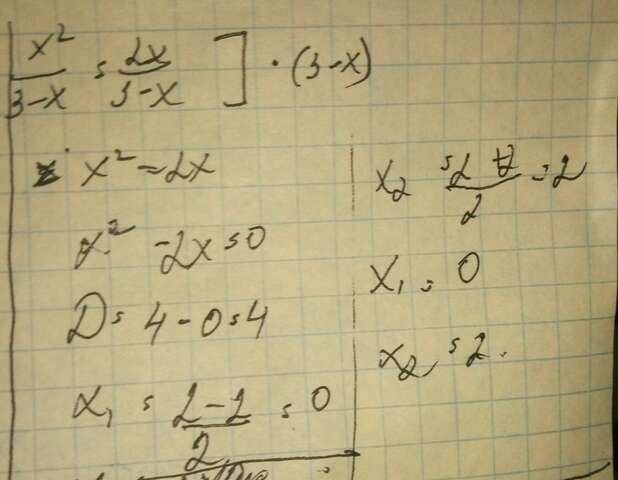 x²/(3-x) = 2x/(3-x) ] · (3-x)
x² = 2x
x² - 2x = 0
D = 4 - 0 = 4
x₁ = (2-2)/2 = 0
x₂ = (2+2)/2 = 2
x₁ = 0
x₂ = 2.